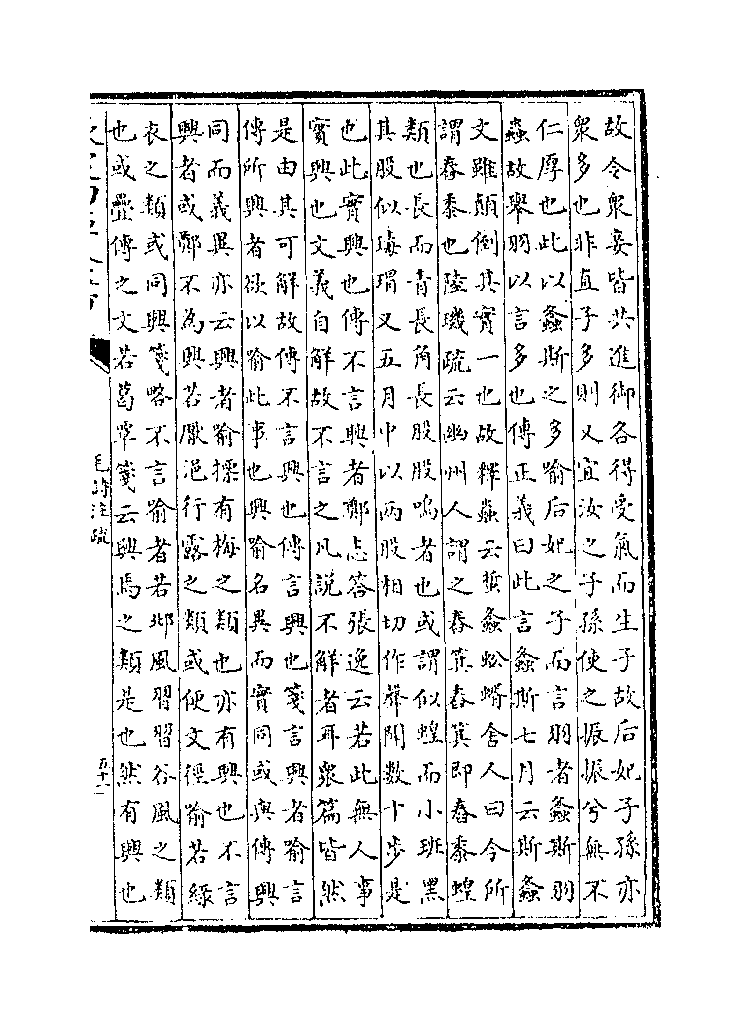 故令衆妾皆共進御各得受氣而生子故后妃子孫亦
衆多也非直子多則又宜汝之子孫使之振振兮無不
仁厚也此以螽斯之多喻后妃之子而言羽者螽斯羽
蟲故舉羽以言多也傳正義曰此言螽斯七月云斯螽
文雖顛倒其實一也故釋蟲云蜇螽蜙蝑舍人曰今所
謂舂黍也陸璣疏云幽州人謂之舂箕舂箕即舂黍蝗
類也長而青長角長股股鳴者也或謂似蝗而小班黑
其股似瑇瑁又五月中以兩股相切作聲聞數十步是
也此實興也傳不言興者鄭志答張逸云若此無人事
實興也文義自解故不言之凡說不解者耳衆篇皆然
是由其可解故傳不言興也傳言興也箋言興者喻言
傳所興者欲以喻此事也興喻名異而實同或與傳興
同而義異亦云興者喻摽有梅之類也亦有興也不言
興者或鄭不為興若厭浥行露之類或便文徑喻若綠
衣之類或同興箋略不言喻者若邶風習習谷風之類
也或疊傳之文若葛覃箋云興焉之類是也然有興也
毛詩注疏